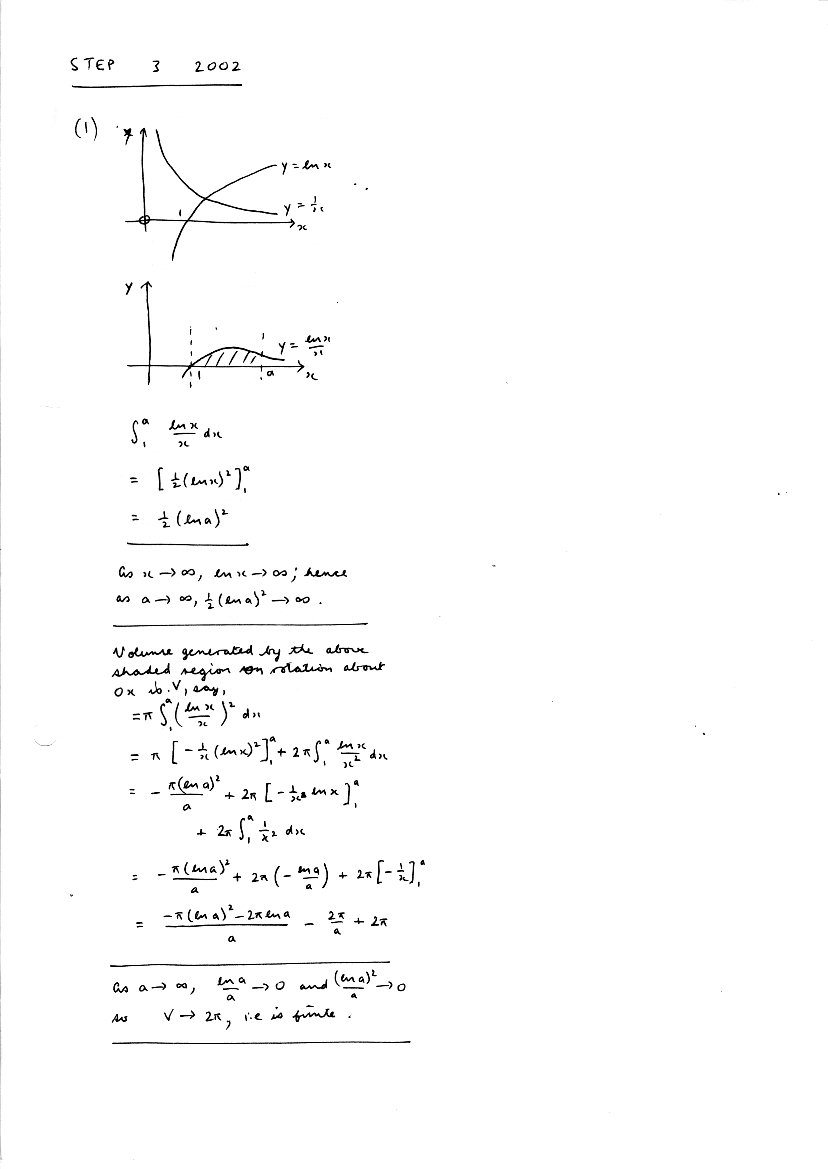 STEP 3 2002
(1)
y
y = ln x
y = 1/x
1
x
y
y = ln x / x
1
a
x
∫₁ᵃ ln x / x dx
= [ ½ (ln x)² ]₁ᵃ
= ½ (ln a)²
As x → ∞, ln x → ∞; hence
as a → ∞, ½ (ln a)² → ∞.
Volume generated by the above
shaded region on rotation about
Ox is V, say,
= π ∫₁ᵃ (ln x / x)² dx
= π [ - 1/x (ln x)² ]₁ᵃ + 2π ∫₁ᵃ ln x / x² dx
= - π(ln a)² / a + 2π [ - 1/x ln x ]₁ᵃ
+ 2π ∫₁ᵃ 1/x² dx
= - π(ln a)² / a + 2π ( - ln a / a ) + 2π [ - 1/x ]₁ᵃ
= -π(ln a)² - 2π ln a / a - 2π/a + 2π
As a → ∞, ln a / a → 0 and (ln a)² / a → 0
so V → 2π, i.e is finite.